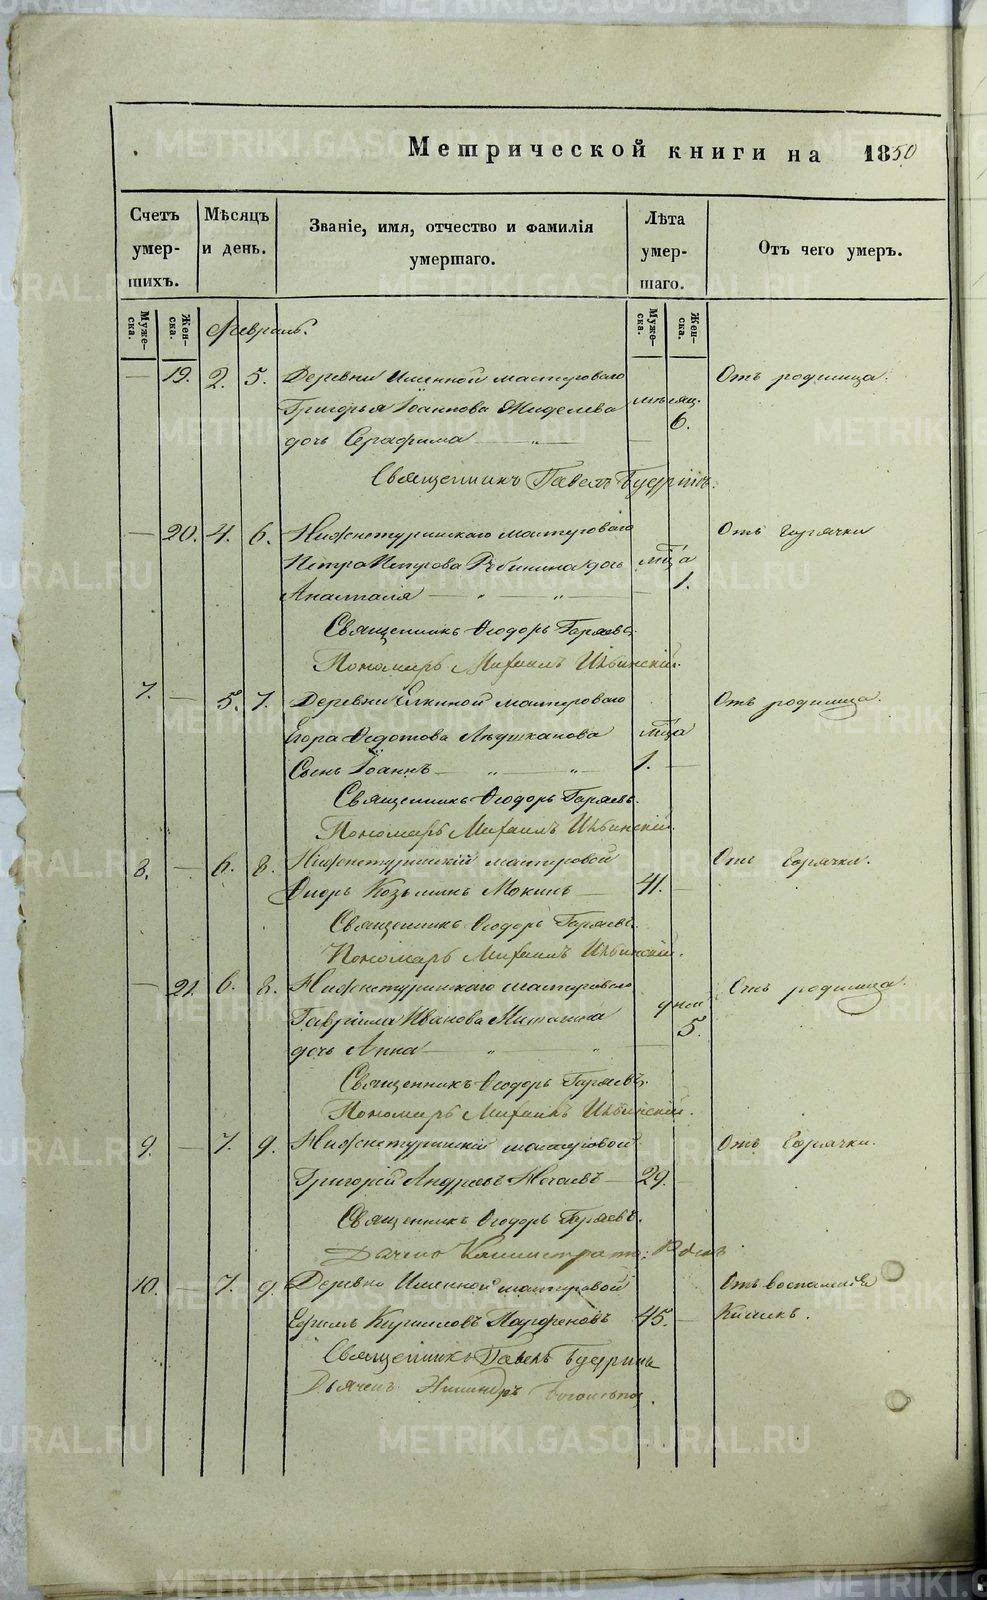 Метрической книги на 1850
Счетъ умер- шихъ.
Мѣсяцъ и день.
Званіе, имя, отчество и фамилія умершаго.
Лѣта умер- шаго.
Отъ чего умеръ.
Муже- ска.
Жен- ска.
Муже- ска.
Жен- ска.
Февраль.
— 19. 2. 5. Деревни Именной мастероваго Отъ родимца.
Григорья Іоаннова мѣсяц.
дочь Серафима — „ — 6.
Священникъ Павелъ Будринъ.
— 20. 4. 6. Нижнетуринскаго мастероваго Отъ горячки
Петра Петрова Рябинина дочь мца
Анастасія — „ — „ — 1.
Священникъ Ѳеодоръ Гаряевъ.
Пономарь Михаилъ Ильинскій.
7. — 5. 7. Деревни Елкиной мастероваго Отъ родимца.
Егора Ѳедотова мца
Сынъ Іоаннъ — „ — „ — 1. —
Священникъ Ѳеодоръ Гаряевъ.
Пономарь Михаилъ Ильинскій.
8. — 6. 8. Нижнетуринскій мастеровой Отъ горячки.
Козьминъ Мокинъ — 41. —
Священникъ Ѳеодоръ Гаряевъ.
Пономарь Михаилъ Ильинскій.
— 21. 6. 8. Нижнетуринскаго мастероваго Отъ родимца.
Гавріила Иванова дней
дочь Анна — „ — „ — 5.
Священникъ Ѳеодоръ Гаряевъ.
Пономарь Михаилъ Ильинскій.
9. — 7. 9. Нижнетуринскій мастеровой Отъ горячки.
Григорій Андреевъ — 29. —
Священникъ Ѳеодоръ Гаряевъ.
10. — 7. 9. Деревни Именной мастеровой Отъ воспаленія
Ефимъ Кирилловъ Парфеновъ 45. — Кишекъ.
Священникъ Павелъ Будринъ
METRIKI.GASO-URAL.RU